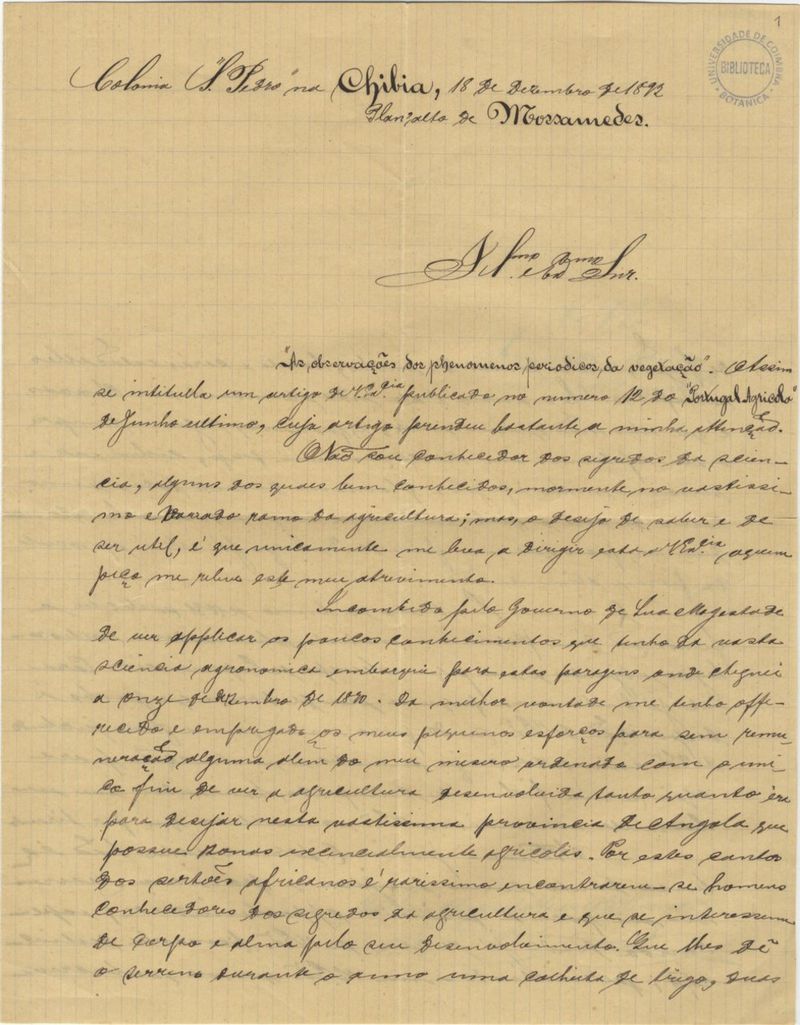 1
UNIVERSIDADE DE COIMBRA
BIBLIOTECA
BOTANICA
Colonia "S. Pedro" na Chibia, 18 de Dezembro de 1892
Planalto de Mossamedes.
Ill.mo e Ex.mo Snr.
"As observações dos phenomenos periodicos da vegetação". Assim
se intitulla um artigo de V.a Ex.cia publicado no numero 12 do "Portugal Agricola"
de Junho ultimo, cujo artigo prendeu bastante a minha attenção.
Não sou conhecedor dos segredos da scien-
cia, alguns dos quaes bem conhecidos, mormente no vastissi-
mo e variado ramo da agricultura; mas, o desejo de saber e de
ser util, é que unicamente me leva a dirigir esta a V.a Ex.cia aquem
peço me releve este meu atrevimento.
Incombido pelo Governo de Sua Magestade
de ver applicar os poucos conhecimentos que tenho da vasta
sciencia agronomica embarquei para estas paragens onde cheguei
a onze de dezembro de 1890. Da melhor vontade me tenho offe-
recido e empregado os meus pequenos esforços para sem remu-
neração alguma alem do meu misero ordenado com o uni-
co fim de ver a agricultura desenvolvida tanto quanto era
para desejar nesta vastissima provincia de Angola que
possue zonas excencialmente agricolas. Por estes cantos
dos sertões africanos é rarissimo encontrarem-se homens
conhecedores dos segredos da agricultura e que se interessem
de corpo e alma pelo seu desenvolvimento. Que lhes dê
o terreno durante o anno uma colheita de trigo, duas